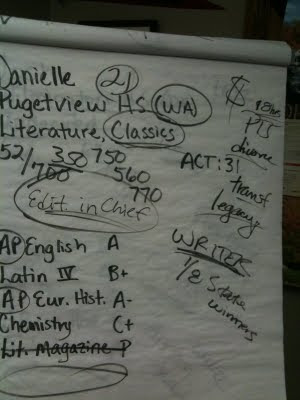 Danielle 21
Pugetview HS (WA)
Literature, Classics
52/700 350 750
560
770
ACT: 31
Edit. in Chief
AP English A
Latin IV B+
AP Eur. Hist. A-
Chemistry C+
Lit. Magazine P
$
PTS
divorce
transf
legacy
WRITER
1/8 State
winners